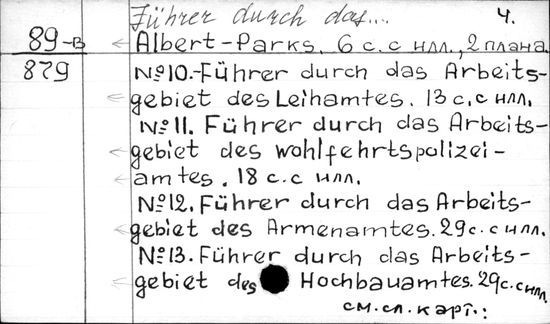 Führer durch das... 4.
89-B Albert-Parks. 6 с. с илл., 2 плана
879 №10.-Führer durch das Arbeits-
gebiet des Leihamtes. 13 с. с илл.
№11. Führer durch das Arbeits-
gebiet des Wohlfehrtspolizei-
amtes. 18 с. с илл.
№12. Führer durch das Arbeits-
gebiet des Armenamtes. 29 с. с илл.
№13. Führer durch das Arbeits-
gebiet des Hochbauamtes. 29 с. с илл.
см. сл. карт.: